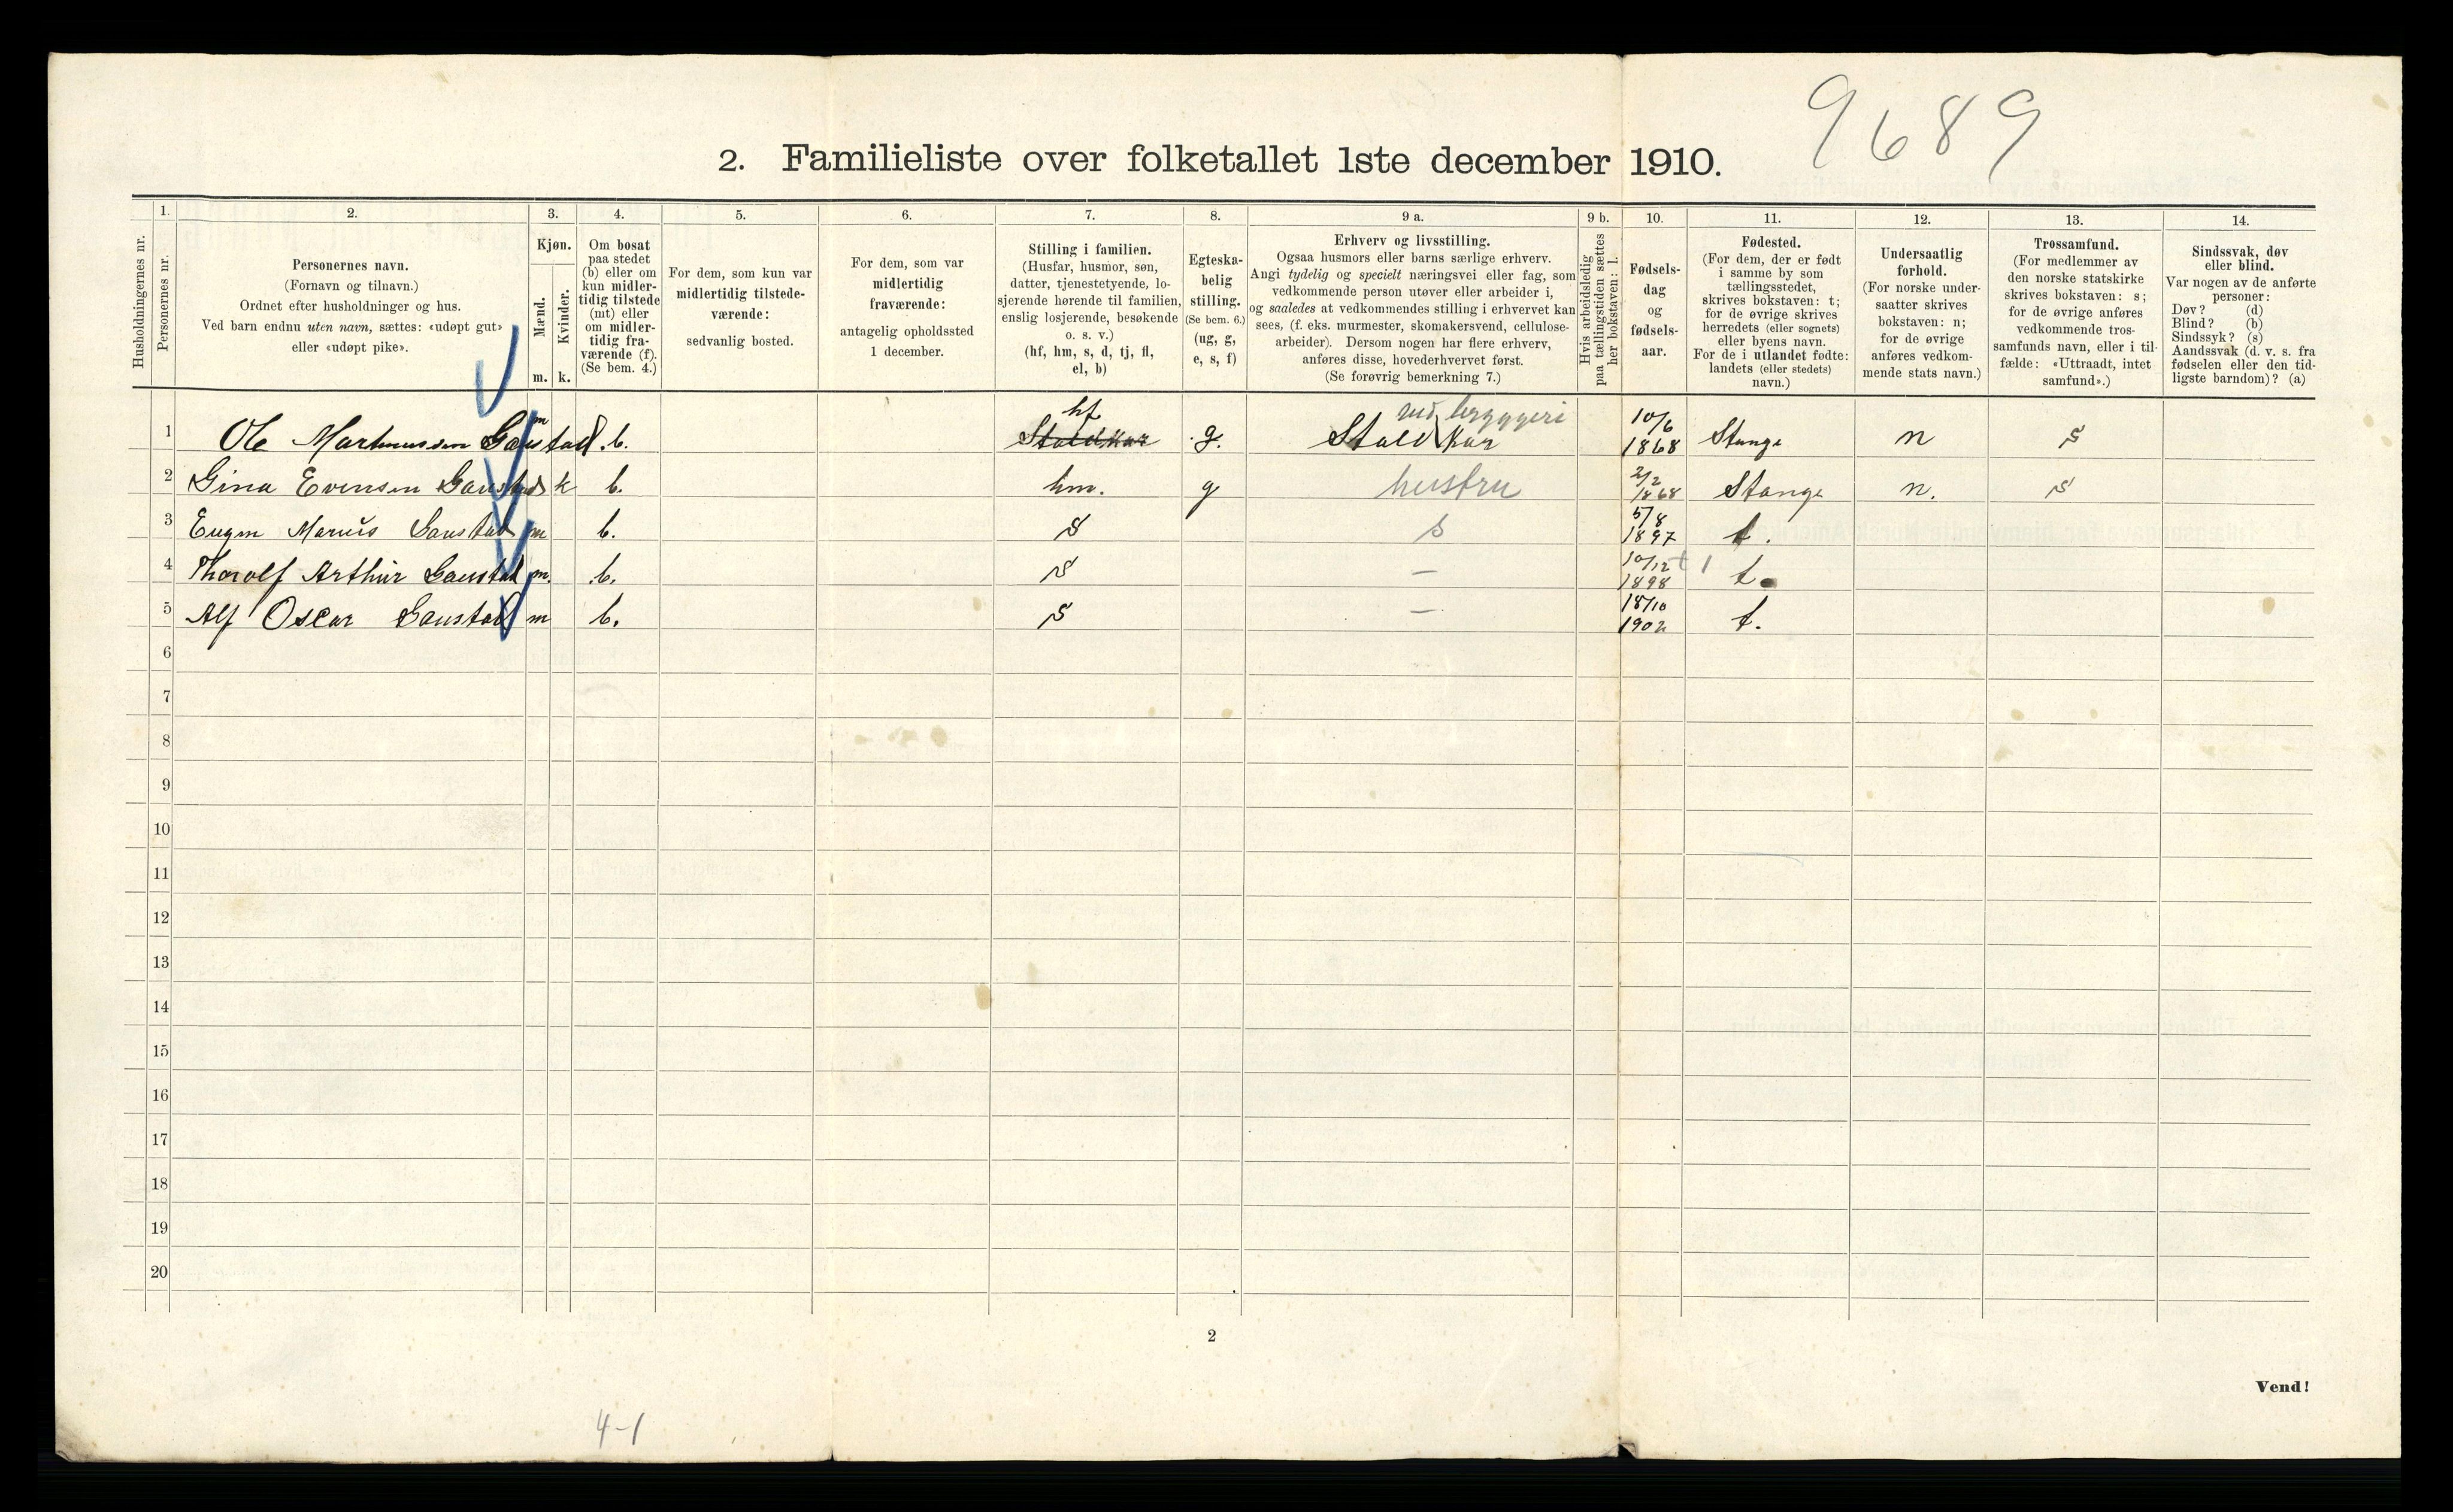 9689
2. Familieliste over folketallet 1ste december 1910.
1. 2. 3. 4. 5. 6. 7. 8. 9 a. 9 b. 10. 11. 12. 13. 14.
Husholdningernes nr.
Personernes nr.
Personernes navn.
(Fornavn og tilnavn.)
Ordnet efter husholdninger og hus.
Ved barn endnu uten navn, sættes: «udøpt gut»
eller «udøpt pike».
Kjøn.
Mænd.
Kvinder.
m. k.
Om bosat
paa stedet
(b) eller om
kun midler-
tidig tilstede
(mt) eller
om midler-
tidig fra-
værende (f).
(Se bem. 4.)
For dem, som kun var
midlertidig tilstede-
værende:
sedvanlig bosted.
For dem, som var
midlertidig
fraværende:
antagelig opholdssted
1 december.
Stilling i familien.
(Husfar, husmor, søn,
datter, tjenestetyende, lo-
sjerende hørende til familien,
enslig losjerende, besøkende
o. s. v.)
(hf, hm, s, d, tj, fl,
el, b)
Egteska-
belig
stilling.
(Se bem. 6.)
(ug, g,
e, s, f)
Erhverv og livsstilling.
Ogsaa husmors eller barns særlige erhverv.
Angi tydelig og specielt næringsvei eller fag, som
vedkommende person utøver eller arbeider i,
og saaledes at vedkommendes stilling i erhvervet kan
sees, (f. eks. murmester, skomakersvend, cellulose-
arbeider). Dersom nogen har flere erhverv,
anføres disse, hovederhvervet først.
(Se forøvrig bemerkning 7.)
Hvis arbeidsledig
paa tællingstiden sættes
her bokstaven: l.
Fødsels-
dag
og
fødsels-
aar.
Fødested.
(For dem, der er født
i samme by som
tællingsstedet,
skrives bokstaven: t;
for de øvrige skrives
herredets (eller sognets)
eller byens navn.
For de i utlandet fødte:
landets (eller stedets)
navn.)
Undersaatlig
forhold.
(For norske under-
saatter skrives
bokstaven: n;
for de øvrige
anføres vedkom-
mende stats navn.)
Trossamfund.
(For medlemmer av
den norske statskirke
skrives bokstaven: s;
for de øvrige anføres
vedkommende tros-
samfunds navn, eller i til-
fælde: «Uttraadt, intet
samfund».)
Sindssvak, døv
eller blind.
Var nogen av de anførte
personer:
Døv? (d)
Blind? (b)
Sindssyk? (s)
Aandssvak (d. v. s. fra
fødselen eller den tid-
ligste barndom)? (a)
hf ved bryggeri
1 Ole Martinussen Gaustad m b. Staldkar g. Staldkar 10/6 1868 Stange n s
2 Gina Evensen Gaustad k b. hm. g hustru 2/2 1868 Stange n. s
3 Eugen Marius Gaustad m b. s s 5/8 1897 t.
4 Thorolf Arthur Gaustad m. b. s — 10/12 1898 t t.
5 Alf Oscar Gaustad m b. s — 18/10 1902 t.
6
7
8
9
10
11
12
13
14
15
16
17
18
19
20
2
Vend!
4-1